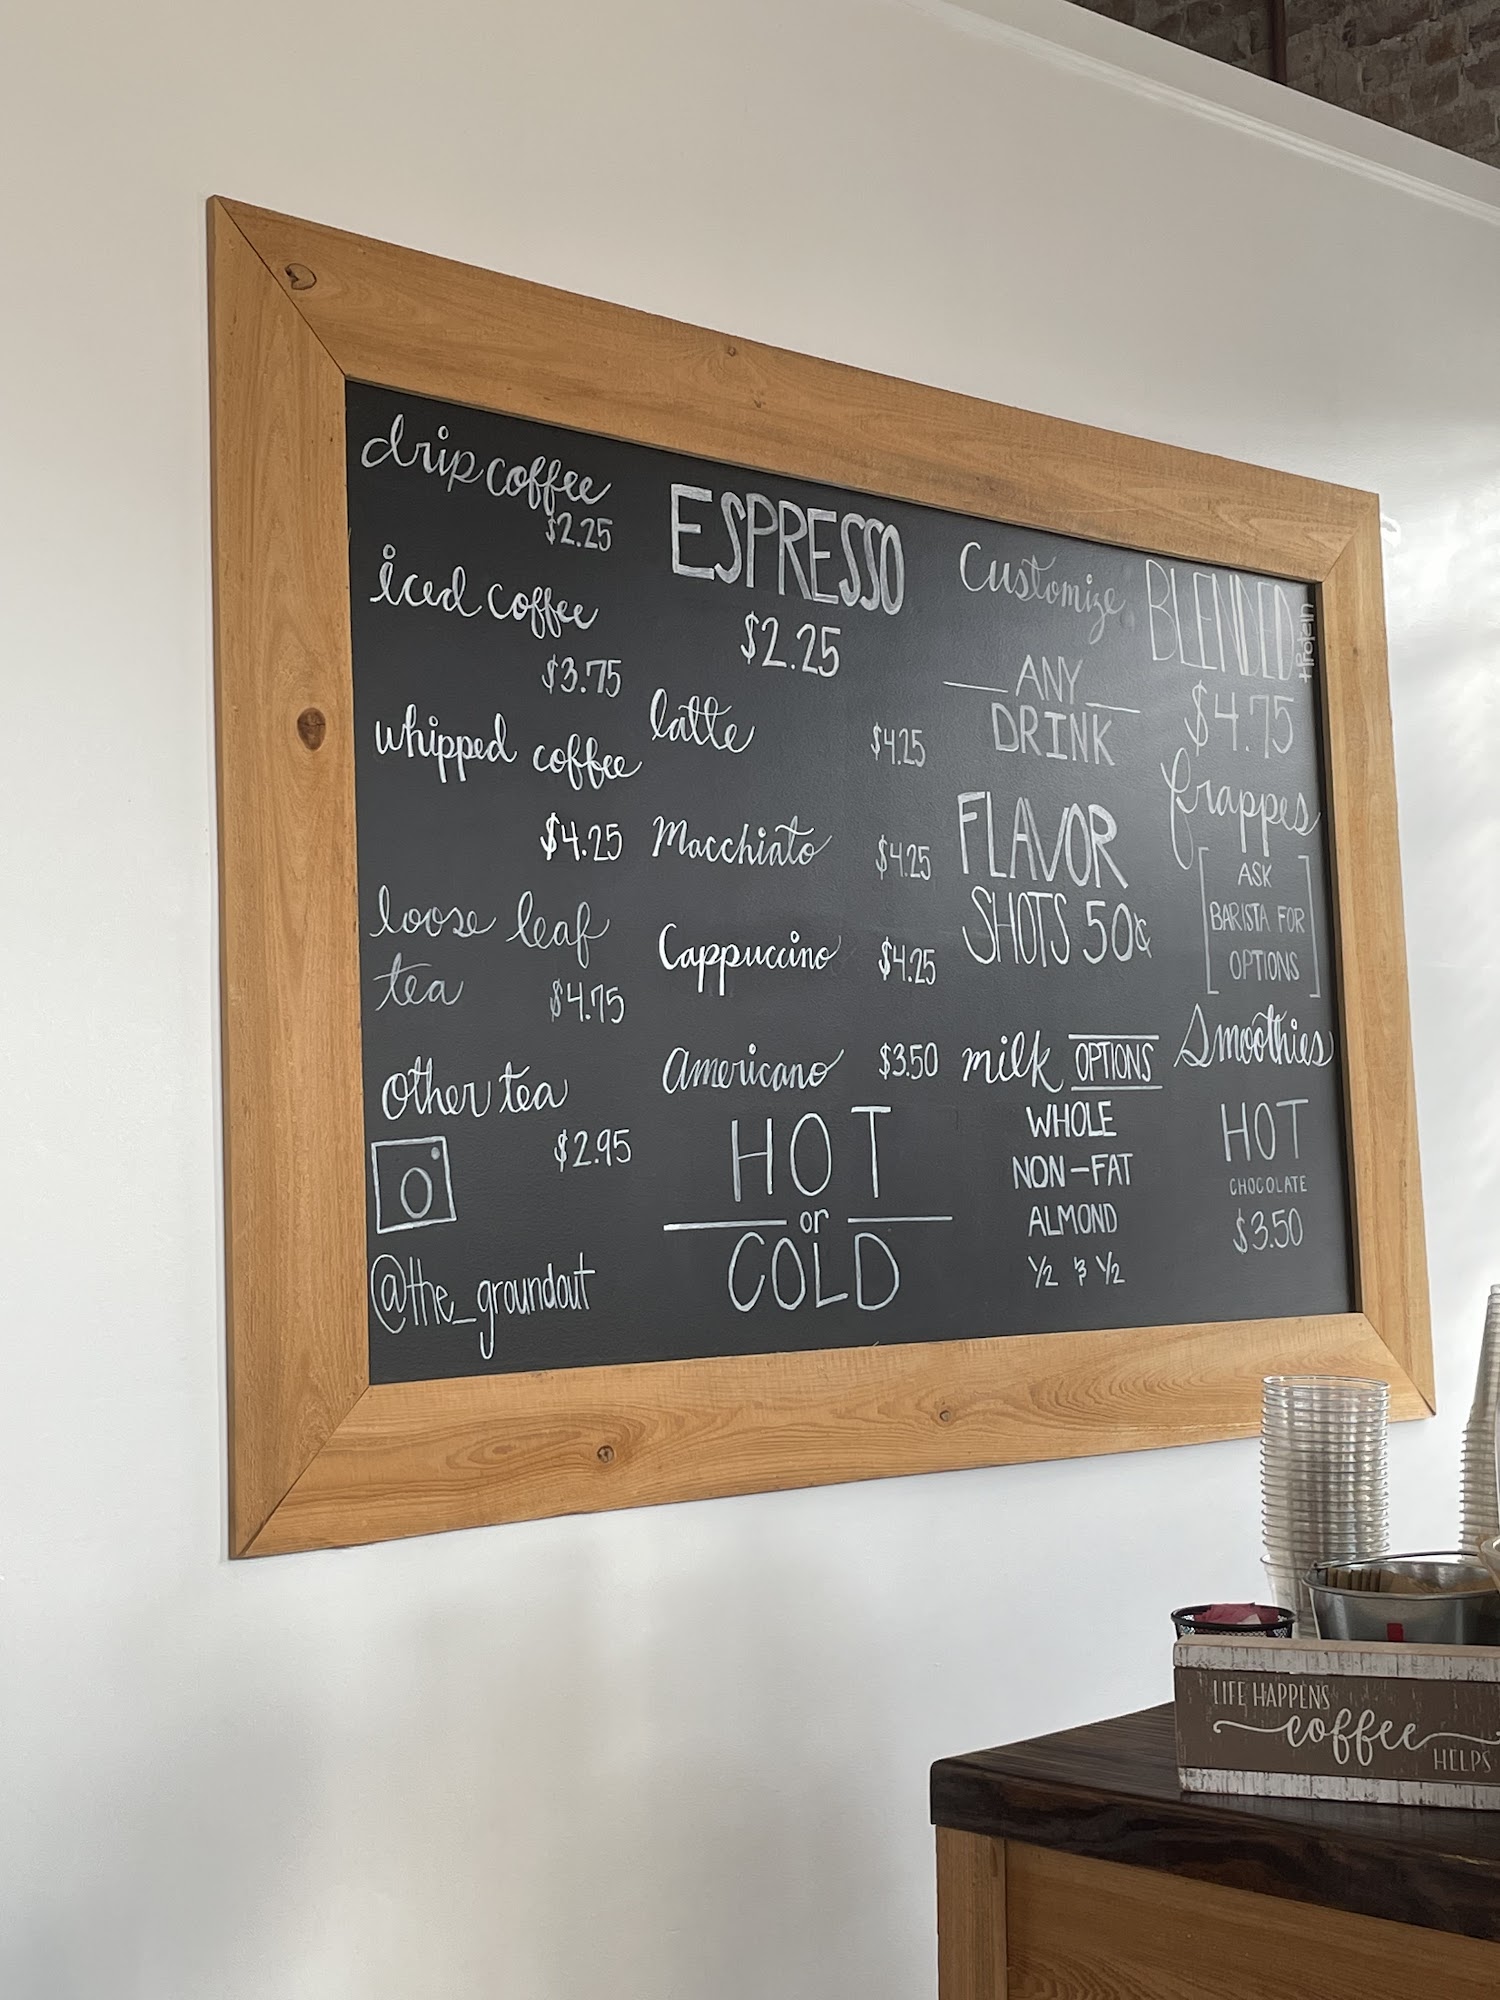 drip coffee
$2.25
iced coffee
$3.75
whipped coffee
$4.25
loose leaf
tea $4.75
other tea
$2.95
@the_groundout
ESPRESSO
$2.25
latte $4.25
Macchiato $4.25
Cappuccino $4.25
Americano $3.50
HOT
or
COLD
Customize
ANY
DRINK
FLAVOR
SHOTS 50¢
milk OPTIONS
WHOLE
NON-FAT
ALMOND
1/2 & 1/2
BLENDED
+Protein
$4.75
frappes
[ASK
BARISTA FOR
OPTIONS]
Smoothies
HOT
CHOCOLATE
$3.50
LIFE HAPPENS
coffee
HELPS